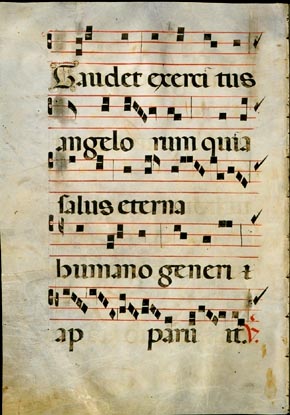 Gaudet exerci tus
angelo rum quia
salus eterna
humano generi
ap paru it.